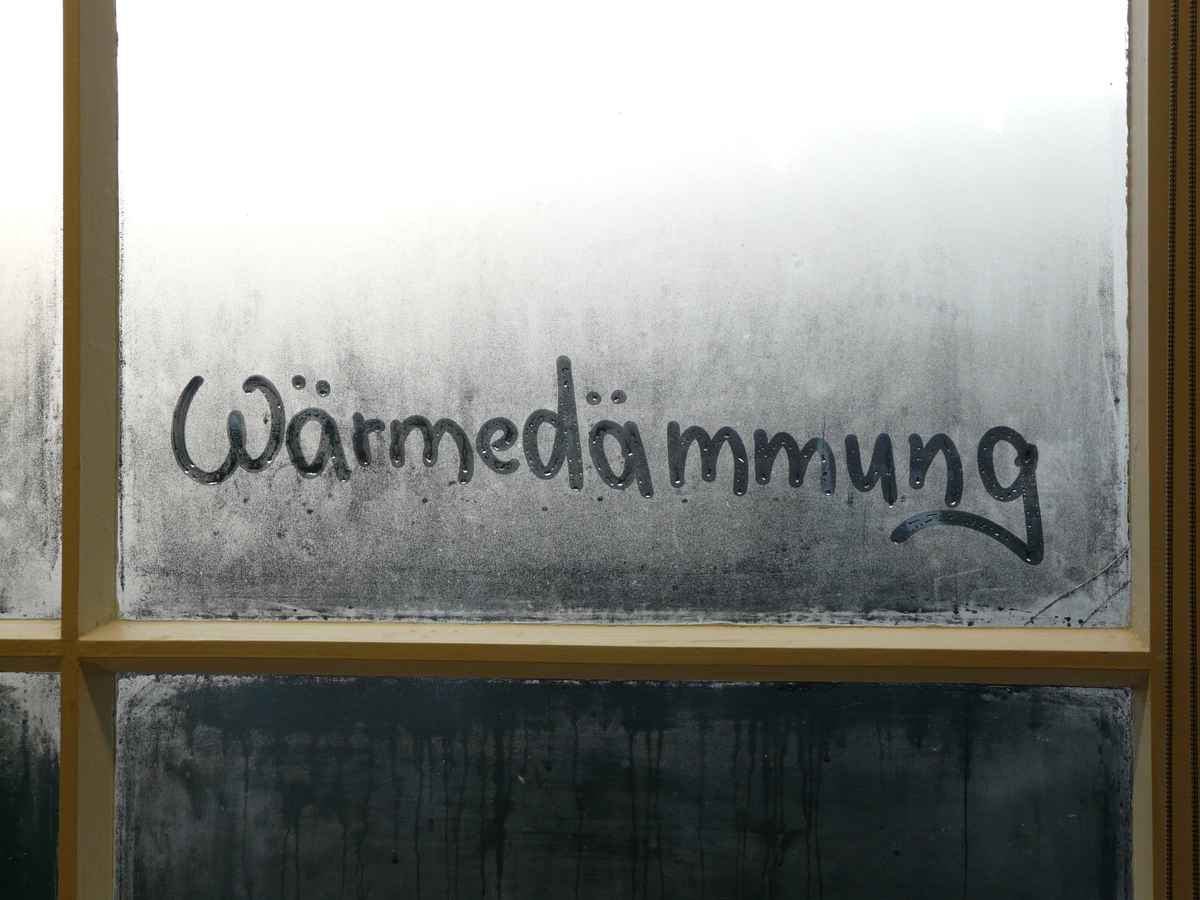 Wärmedämmung